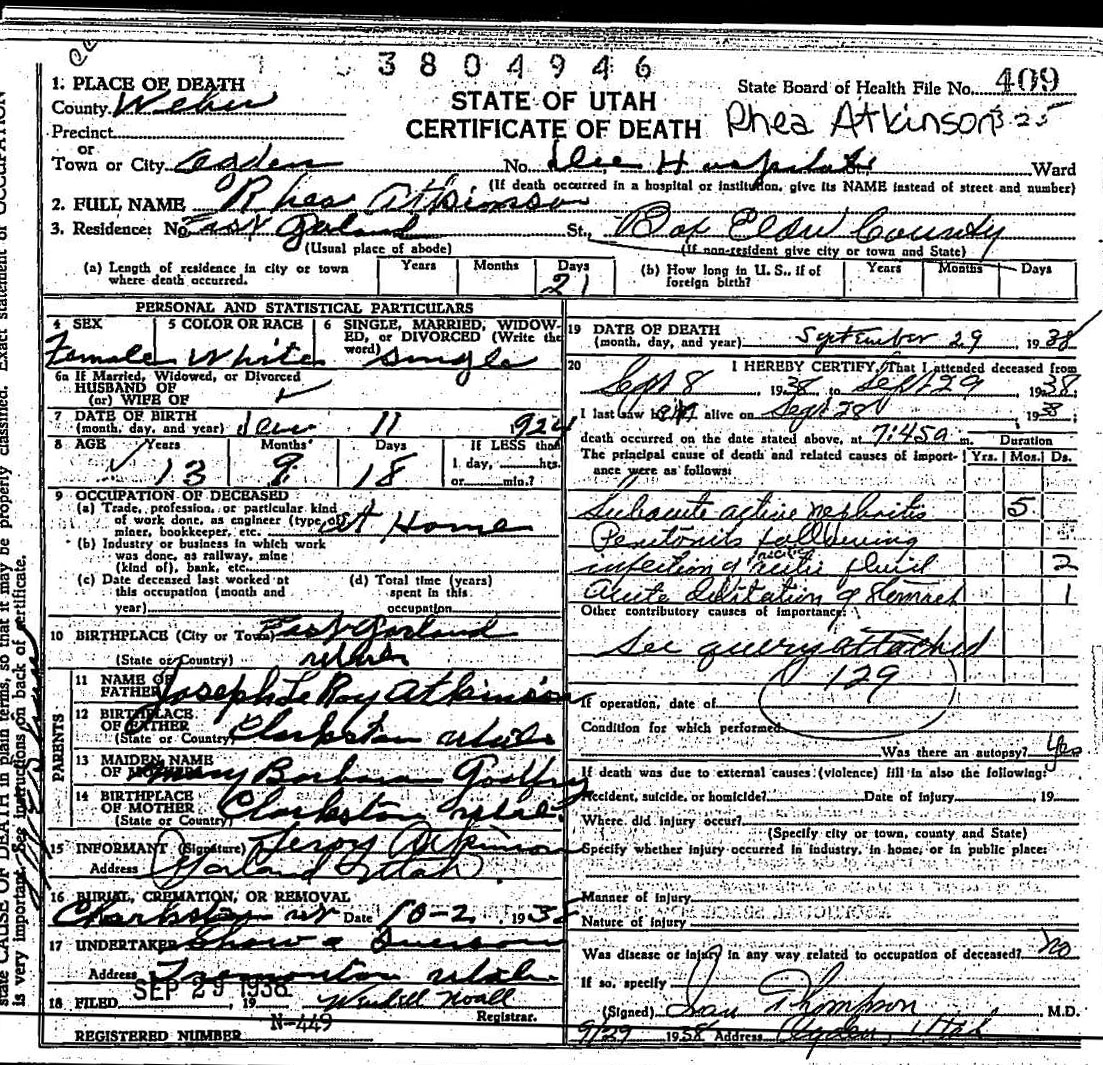 3804946
1. PLACE OF DEATH
State Board of Health File No. 409
County Weber
STATE OF UTAH
Precinct
CERTIFICATE OF DEATH
Rhea Atkinson
3-25
or
Town or City Ogden No. Dee Hospital St., Ward
(If death occurred in a hospital or institution, give its NAME instead of street and number)
2. FULL NAME Rhea Atkinson
3. Residence: No. East Garland St., Box Elder County
(Usual place of abode) (If non-resident give city or town and State)
(a) Length of residence in city or town where death occurred. Years Months Days 21
(b) How long in U. S., if of foreign birth? Years Months Days
PERSONAL AND STATISTICAL PARTICULARS
4 SEX Female
5 COLOR OR RACE White
6 SINGLE, MARRIED, WIDOWED, or DIVORCED (Write the word) Single
6a If Married, Widowed, or Divorced
HUSBAND OF
(or) WIFE OF
7 DATE OF BIRTH
(month, day, and year) 11 924
8 AGE Years 13 Months 9 Days 18 If LESS than
1 day, hrs.
or min.?
9 OCCUPATION OF DECEASED
(a) Trade, profession, or particular kind
of work done, as engineer (type of
miner, bookkeeper, etc. At Home
(b) Industry or business in which work
was done, as railway, mine
(kind of), bank, etc.
(c) Date deceased last worked at
this occupation (month and
year)
(d) Total time (years)
spent in this
occupation
10 BIRTHPLACE (City or Town) East Garland
(State or Country) Utah
PARENTS
11 NAME OF
FATHER Joseph LeRoy Atkinson
12 BIRTHPLACE
OF FATHER Clarkston Utah
(State or Country)
13 MAIDEN NAME
OF MOTHER Mary Barbara Godfrey
14 BIRTHPLACE
OF MOTHER Clarkston Utah
(State or Country)
15 INFORMANT (Signature) Leroy Atkinson
Address Garland Utah
16 BURIAL, CREMATION, OR REMOVAL
Clarkston Ut Date 10-2 1938
17 UNDERTAKER Shaw & Iverson
Address Tremonton Utah
18 FILED SEP 29 1938, 19 Wendell Noall
Registrar.
N-449
REGISTERED NUMBER
19 DATE OF DEATH
(month, day, and year) September 29, 1938
20 I HEREBY CERTIFY, That I attended deceased from
Sept 8 1938, to Sept 29 1938
I last saw her alive on Sept 28 1938;
death occurred on the date stated above, at 7:45a m.
Duration
The principal cause of death and related causes of importance were as follows: Yrs. Mos. Ds.
Subacute active nephritis 5
Peritonitis following
infection of ascitic fluid 2
Acute dilitation of stomach 1
Other contributory causes of importance:
See query attached
129
If operation, date of
Condition for which performed
Was there an autopsy? Yes
If death was due to external causes (violence) fill in also the following:
Accident, suicide, or homicide? Date of injury 19
Where did injury occur?
(Specify city or town, county and State)
Specify whether injury occurred in industry, in home, or in public place:
Manner of injury
Nature of injury
Was disease or injury in any way related to occupation of deceased? No
If so, specify
(Signed) Thompson M.D.
9/29 1938 Address Ogden, Utah
state CAUSE OF DEATH in plain terms, so that it may be properly classified. Exact statement of OCCUPATION
is very important. See instructions on back of certificate.